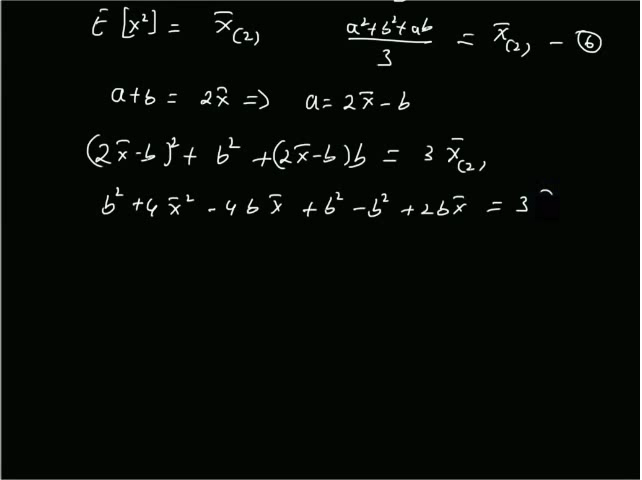 E [x²] = x̄₍₂₎    (a²+b²+ab)/3 = x̄₍₂₎ – ⑥
a+b = 2x̄ => a = 2x̄ – b
(2x̄–b)² + b² + (2x̄–b)b = 3 x̄₍₂₎
b² + 4x̄² – 4bx̄ + b² – b² + 2bx̄ = 3